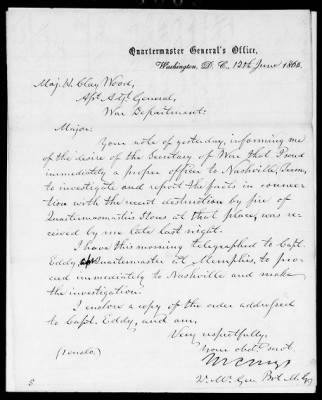 Quartermaster General's Office,
Washington, D. C., 12th June 1865.
Maj. H. Clay Wood,
Asst. Adjt. General,
War Department:
Major:
Your note of yesterday, informing me
of the desire of the Secretary of War that I send
immediately a proper officer to Nashville, Tenn.,
to investigate and report the facts in connec-
tion with the recent destruction by fire of
Quartermaster's Stores at that place, was re-
ceived by me late last night.
I have this morning telegraphed to Capt.
Eddy, Quartermaster at Memphis, to pro-
ceed immediately to Nashville and make
the investigation.
I enclose a copy of the order addressed
to Capt. Eddy, and am,
Very respectfully,
Your obdt. servt.
(1 enclo.)
Q. M. Gen Bvt. M. Gen